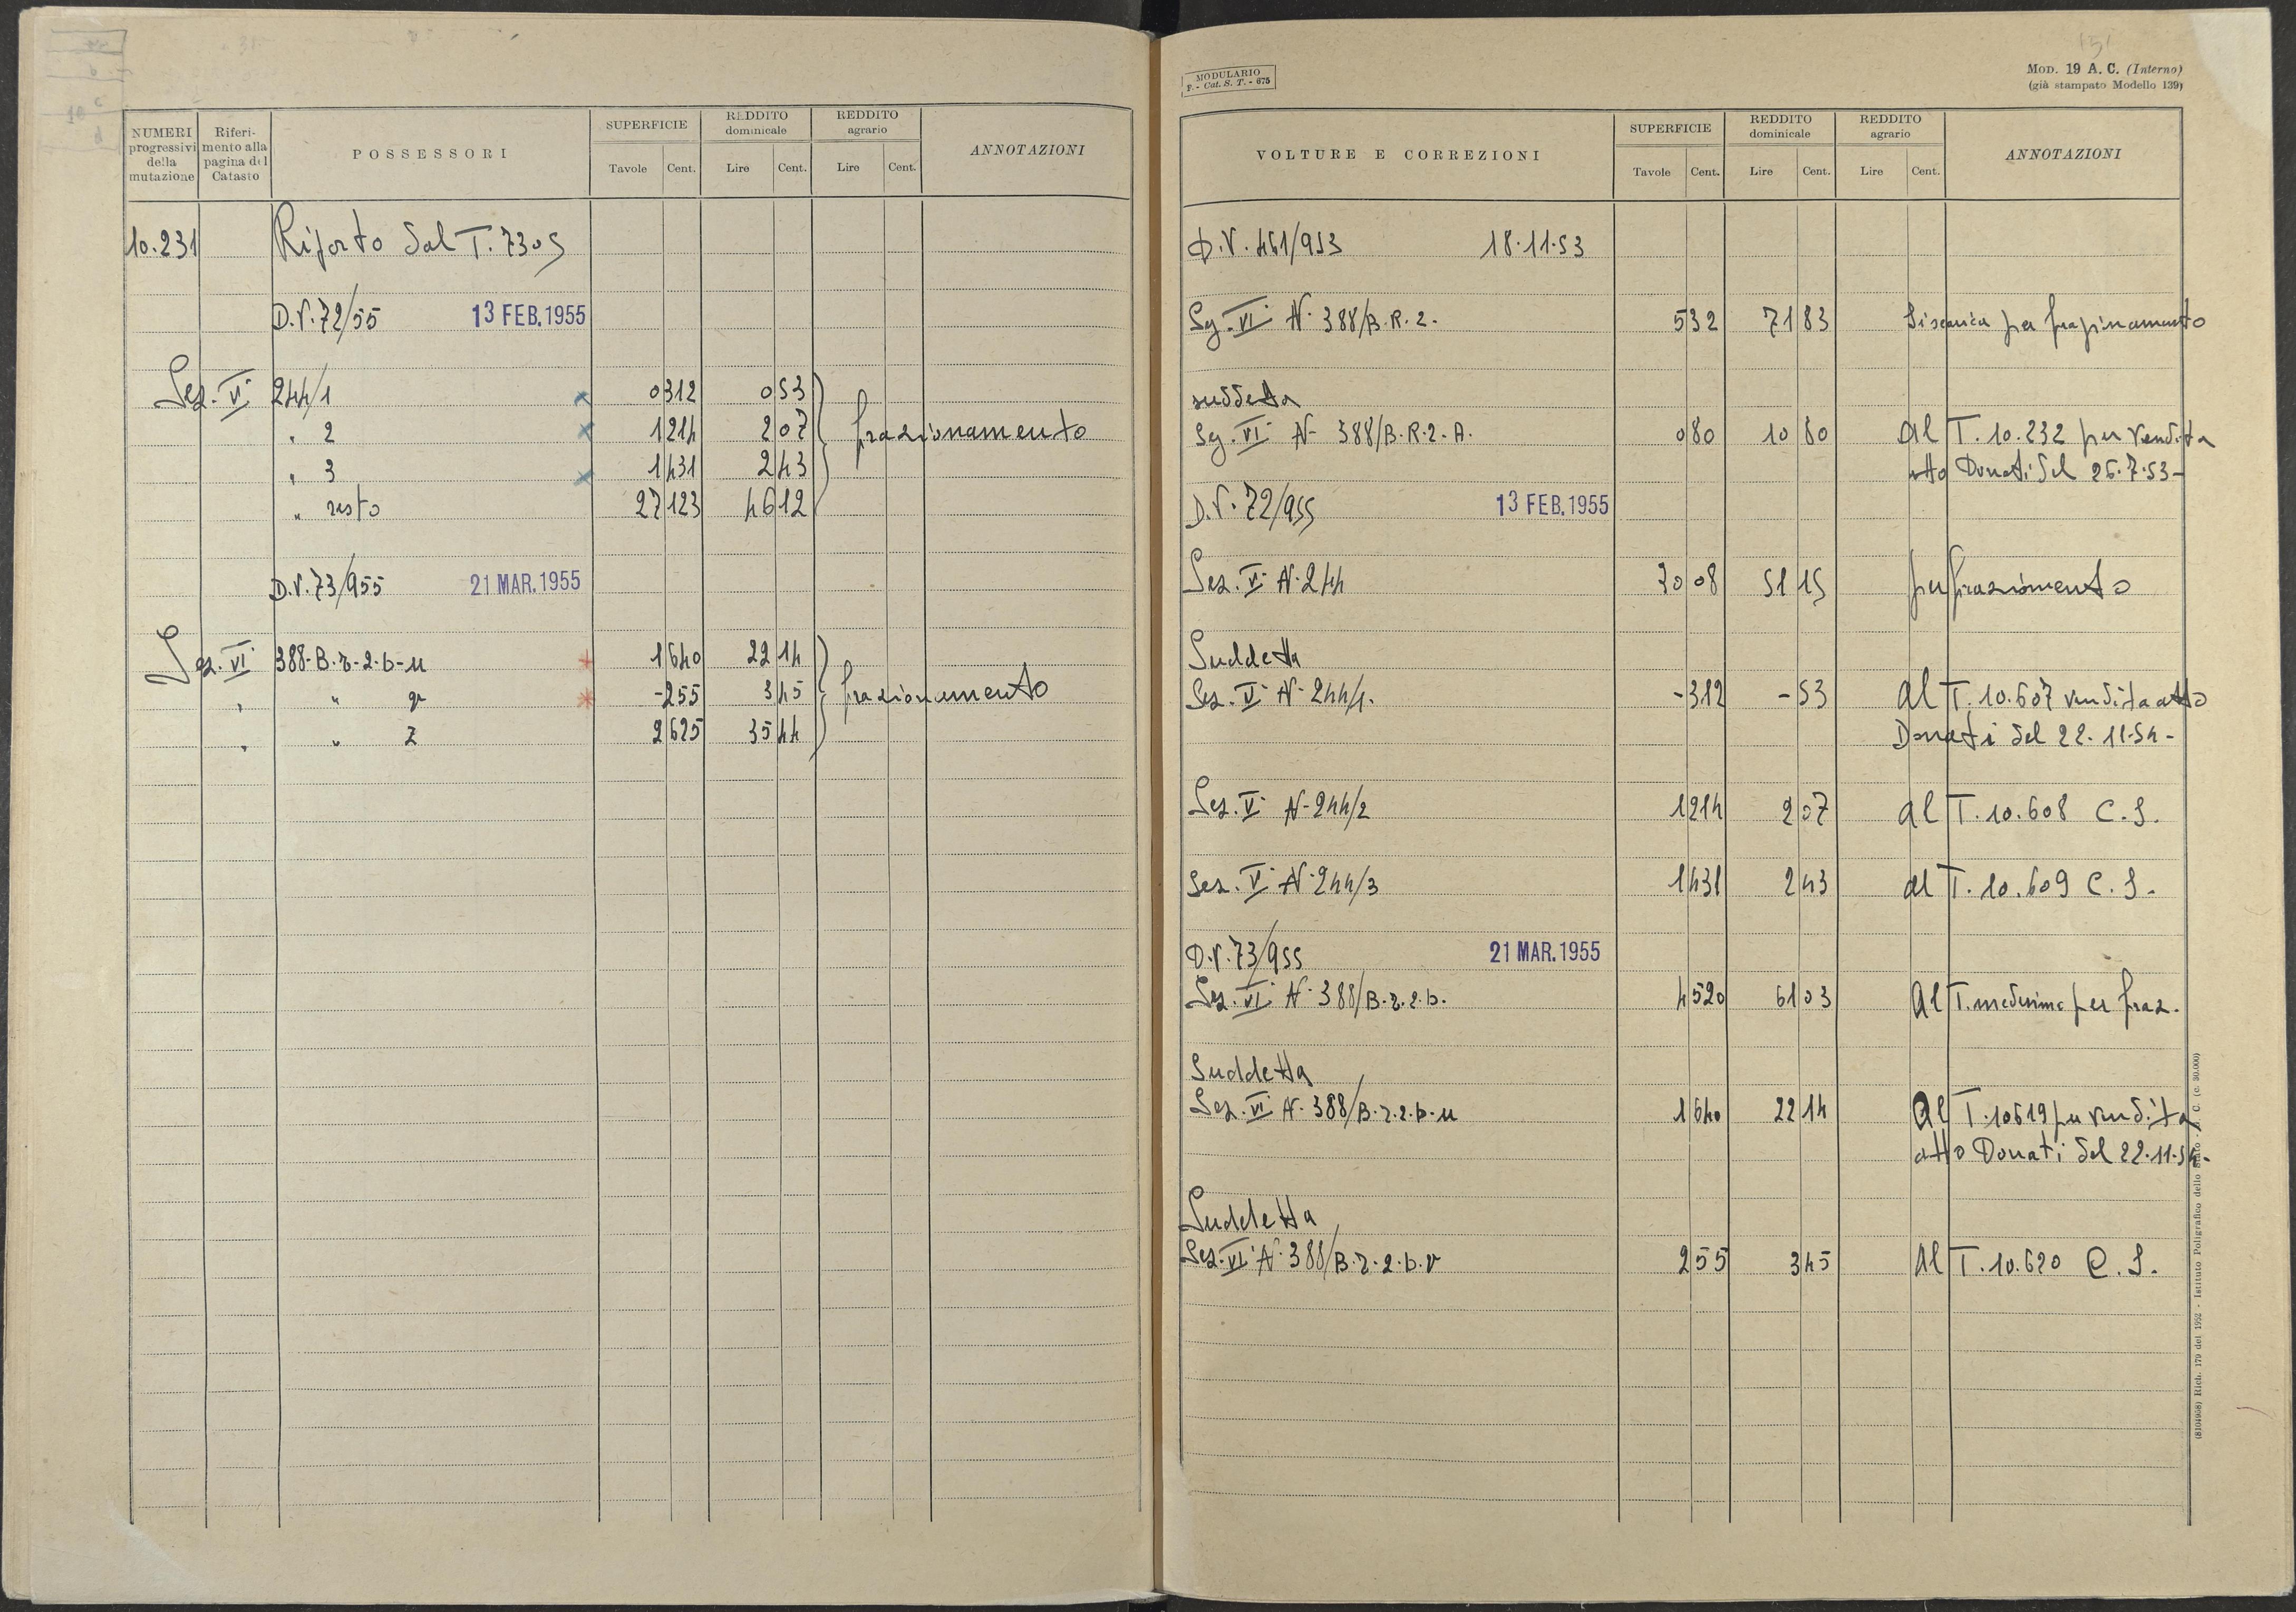 NUMERI progressivi della mutazione
Riferimento alla pagina del Catasto
POSSESSORI
SUPERFICIE
Tavole Cent.
REDDITO dominicale
Lire Cent.
REDDITO agrario
Lire Cent.
ANNOTAZIONI
10.231 Riporto dal T. 7305
D.V. 72/55 13 FEB. 1955
Sez. VI 244/1 0 312 0 53
" 2 1 214 2 07 frazionamento
" 3 1 431 2 43
" resto 27 123 46 12
D.V. 73/955 21 MAR. 1955
Sez. VI 388-B-r-2-b-u 1 640 22 14
" " -255 3 45 frazionamento
" " Z 2 625 35 44
MODULARIO
F. - Cat. S. T. - 675
MOD. 19 A. C. (Interno)
(già stampato Modello 139)
VOLTURE E CORREZIONI
SUPERFICIE
Tavole Cent.
REDDITO dominicale
Lire Cent.
REDDITO agrario
Lire Cent.
ANNOTAZIONI
D.V. 461/953 18-11-53
VI N. 388/B.R.2. 5 32 71 83 discarica per frazionamento
suddetta
VI N- 388/B.R.2.A. 0 80 10 80 al T. 10.232 per vendita
atto Donati del 26.7.53-
D.V. 72/955 13 FEB. 1955
Sez. V N-244 30 08 51 15 per frazionamento
Suddetta
Sez. V N-244/1. -312 -53 al T. 10.607 vendita atto
Donati del 22-11-54-
Sez. V N-244/2 1 214 2 07 al T. 10.608 C.S.
Sez. V N-244/3 1 431 2 43 al T. 10.609 C.S.
D.V. 73/955 21 MAR. 1955
Sez. VI N. 388/B-r.2.b. 4 520 61 03 Al T. medesimo per fraz.
Suddetta
Sez. VI N. 388/B-r.2.b-u 1 640 22 14 Al T. 10619 per vendita
atto Donati del 22-11-54-
Suddetta
Sez. VI N. 388/B-r-2.b.v 2 55 3 45 Al T. 10.620 C.S.
(8104968) Rich. 179 del 1952 - Istituto Poligrafico dello Stato - P. C. (c. 30.000)